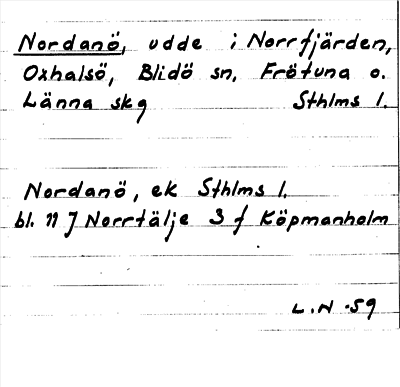 Nordanö, udde i Norrfjärden,
Oxhalsö, Blidö sn, Frötuna o.
Länna skg Sthlms l.
Nordanö, ek Sthlms l.
bl. 11 J Norrtälje 3 f Köpmanholm
L.N -59